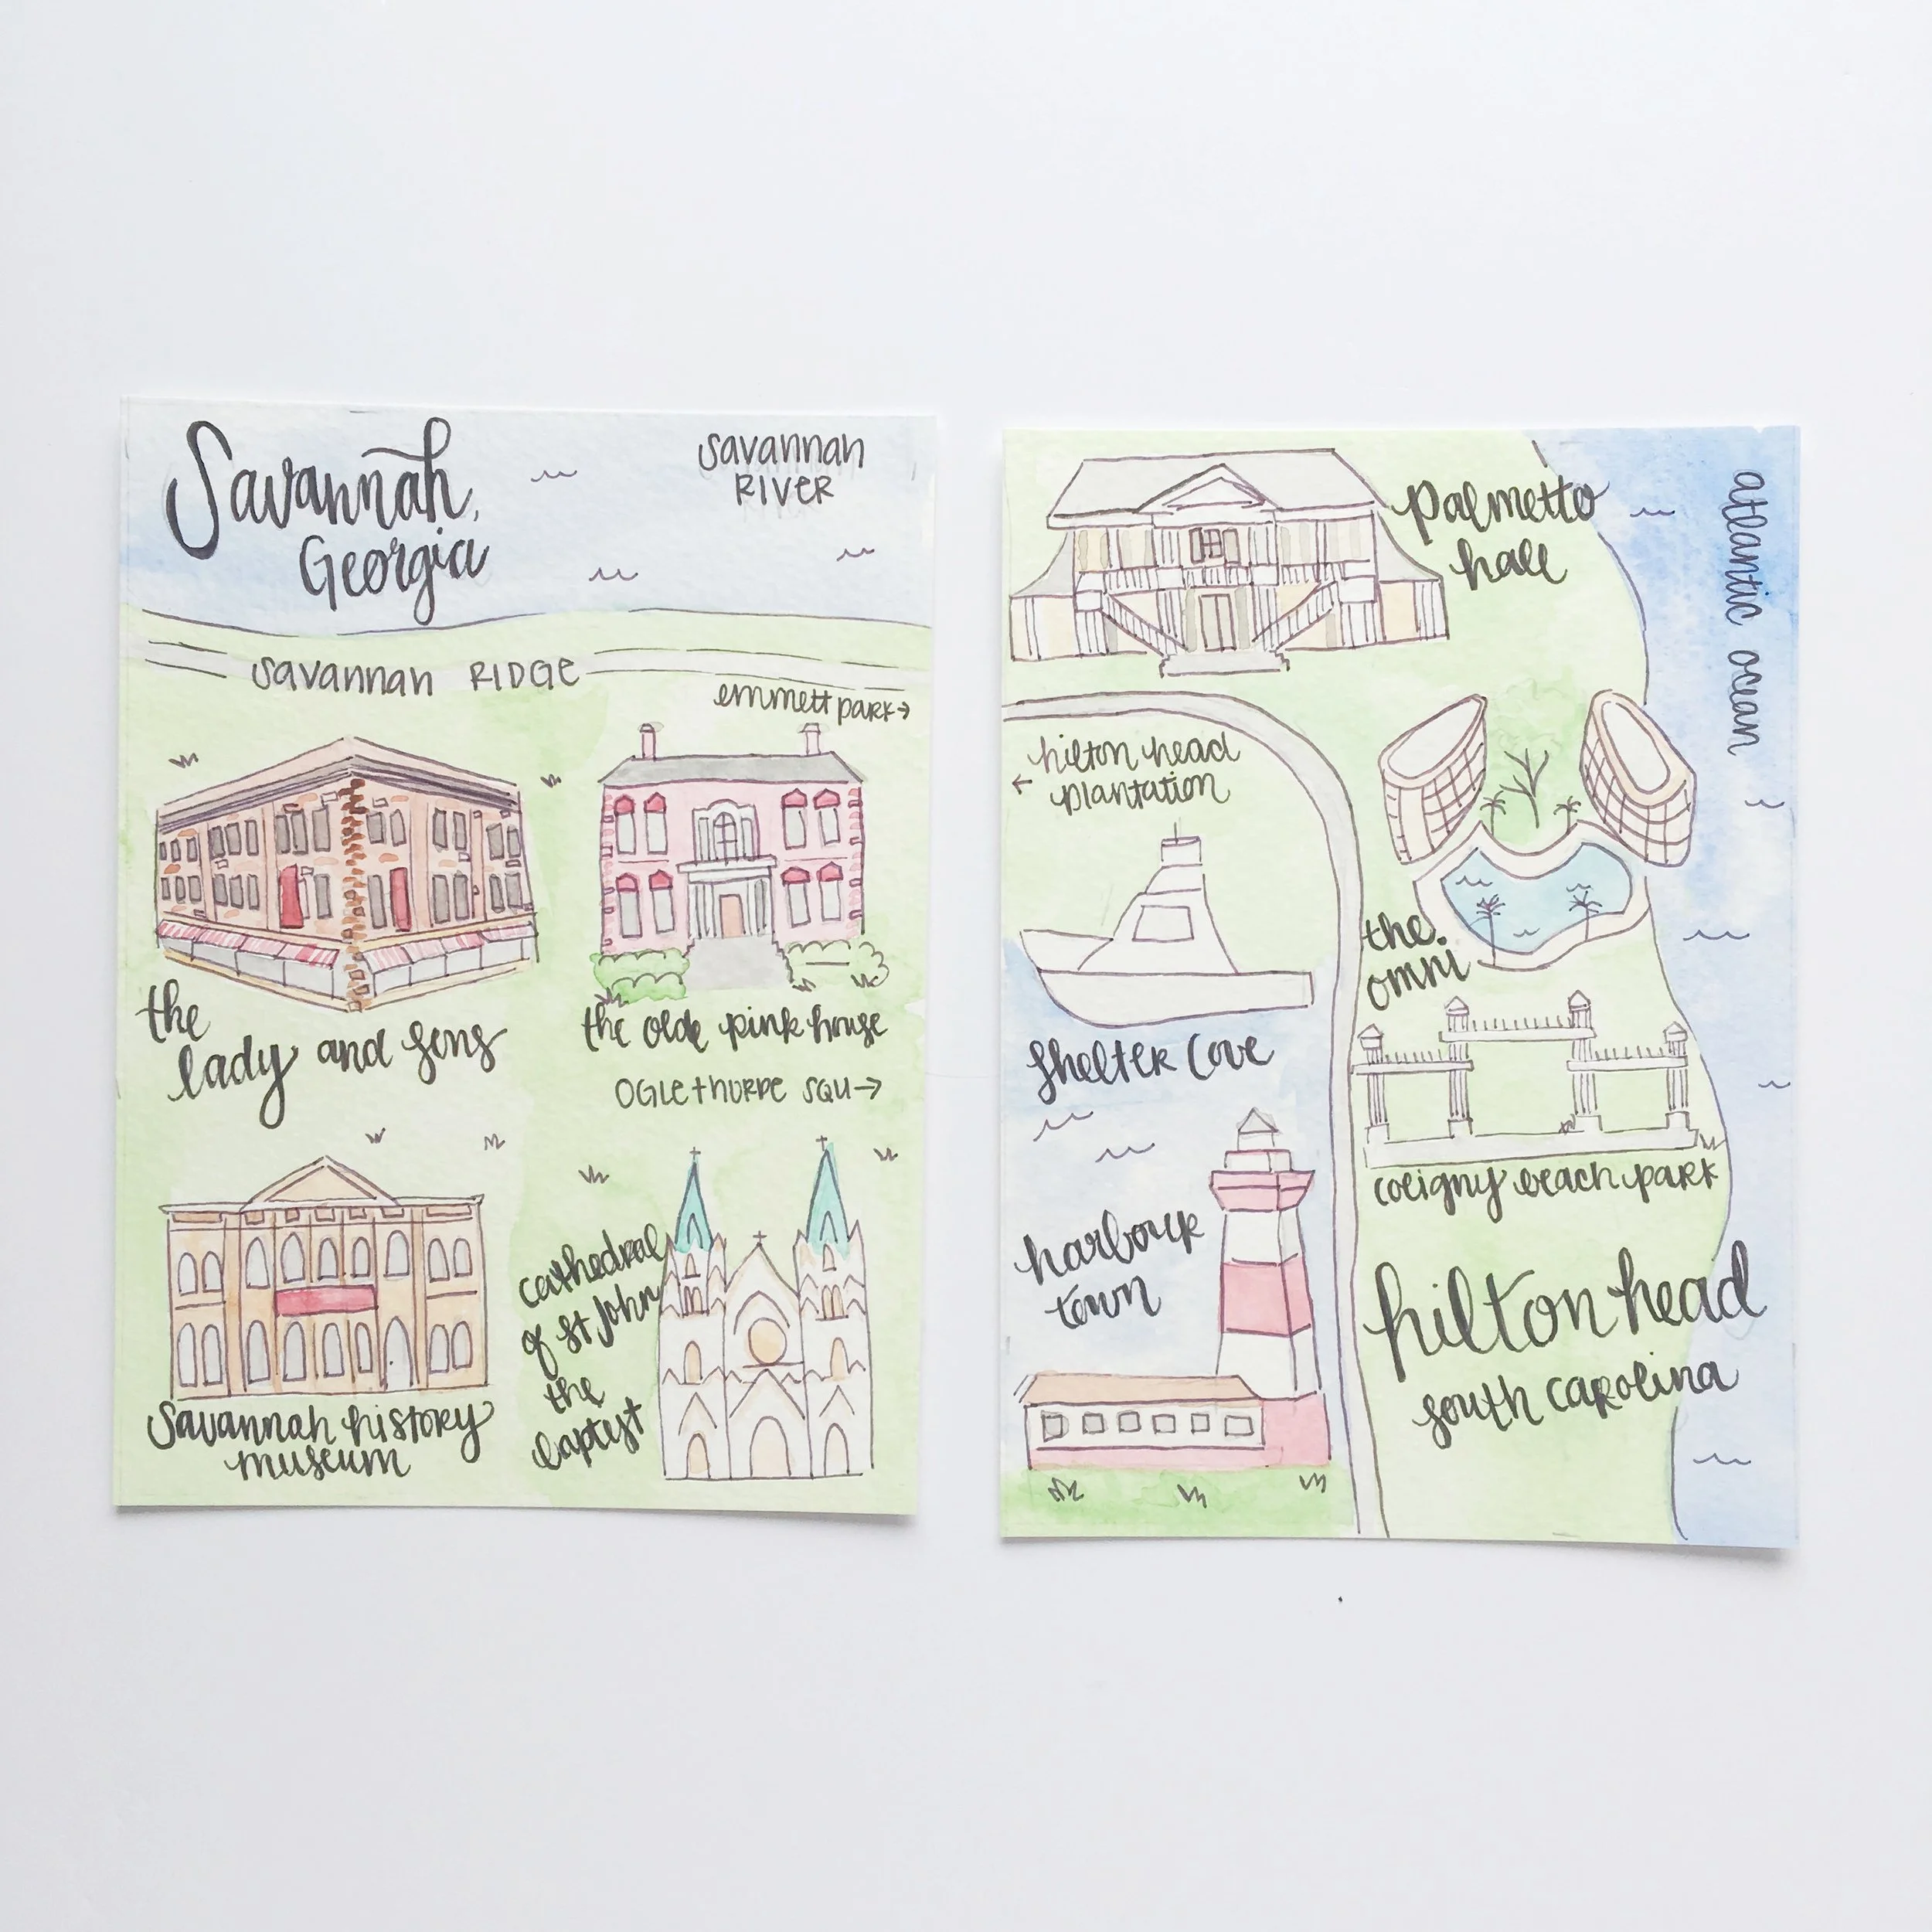 Savannah,
Georgia
Savannah
River
Savannah Ridge
emmett park →
the
lady and sons
the olde pink house
Oglethorpe Squ →
Savannah history
museum
cathedral
of st john
the
baptist
palmetto
hall
atlantic ocean
← hilton head
plantation
the
omni
shelter cove
coligny beach park
harbour
town
hilton head
south carolina